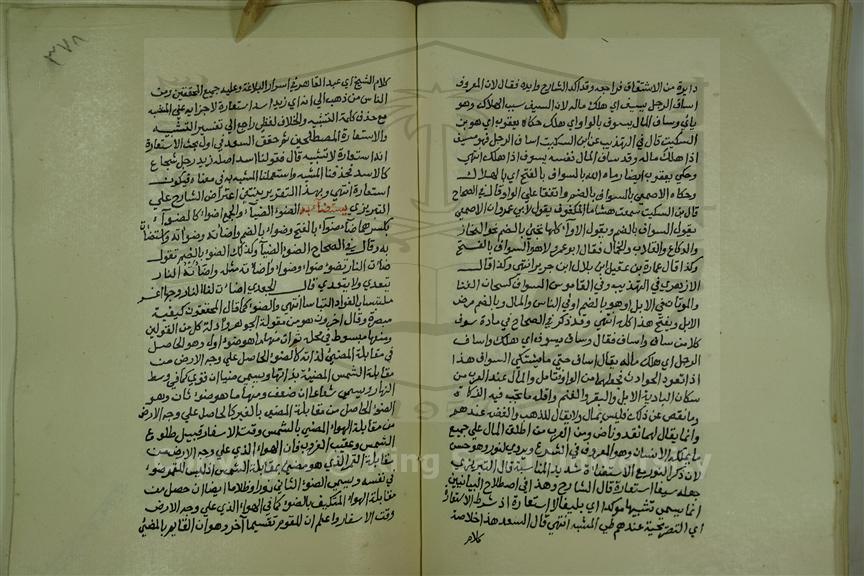 دايرة من الاشتقاق فراجعه وقد اكد الشارح وايده فقال لان المعروف
اساف الرجل يسيف اي هلك ماله لان السيف سبب الهلاك وهو
يائي وساف المال يسوف بالواو اي هلك حكاه يعقوب اي هو بن
السكيت قال في التهذيب عن ابن السكيت اساف الرجل فهو مسيف
اذا هلك ماله وقد ساف المال نفسه يسوف اذا هلك انتهى
وحكي يعقوب ايضا رماه الله بالسواف بالفتح اي بالهلاك
وحكاه الاصمعي بالسواف بالضم واتفقا على الواو قال في الصحاح
قال بن السكيت سمعت هشاما المكفوف يقول لابي عمرو ان الاصمعي
يقول السواف بالضم ويقول الادواء كلها تجئ بالضم نحو النحاز
والدكاع والقلاب والخمال فقال ابو عمرو لا هو السواف بالفتح
وكذا قال عمارة بن عقيل ابن بلال ابن جرير انتهى وكذا قال
الازهري في التهذيب وفي القاموس السواف كسحاب القثا
والموتان في الابل او هو بالضم او في الناس والمال وبالضم مرض
الابل ويفتح هذا كله انتهى وقد ذكر في الصحاح في مادة سوف
كلا من ساف واساف فقال وساف يسوف اي هلك واساف
الرجل اي هلك ماله يقال اساف حتى ما يشتكي السواف هذا
اذا تعود الحوادث من الواو تامل والمال عند العرب من
سكان البادية الابل والبقر والغنم واقله ما تجب فيه الزكاة
وما نقص عن ذلك فليس بمال ولا يقال للذهب والفضة عندهم
وانما يقال لهما نقد وناض ومن العرب من اطلق المال على جميع
ما يملكه الانسان وهو المعروف في الشرع وهو حسن
لان ذكر التوزيع الاستعفاء شديد المناسبة قال التبريزي
جعله سيفا استعارة قال الشارح وهذا في اصطلاح البيانيين
انما يسمى تشبيها موكدا اي بليغا لا استعارة اذ شرط الاستعارة
اي التصريحية عندهم طي المشبه انتهى قال السعد هذا خلاصة
كلام
٣٧٨
كلام الشيخ اي عبد القاهر في اسرار البلاغة وعليه جميع المحققين ومن
الناس من ذهب الى ان اي زيد اسد استعارة لاجرايه على المشبه
مع حذف كلمة التشبيه والخلاف لفظي راجع الى تفسير التشبيه
والاستعارة المصطلحين ثم حقق السعد في اول بحث الاستعارة
انه استعارة لا تشبيه قال فقولنا اسد اصله زيد رجل شجاع
كالاسد فحذفنا المشبه واستعملنا المشبه به في معناه فيكون
استعارة انتهى وبهذا التقرير يتبين اعتراض الشارح على
التبريزي يستضاء به الضوء الضياء والجمع اضواء كالضواء
بكسرها ضاء ضوءا بالفتح وضوءا بالضم واضاء وضوأته واستضأت
به وقال في الصحاح الضوء الضياء وكذلك الضوء بالضم تقول
ضاءت النار تضوء ضوءا وضوءا واضاءت مثله واضاءته النار
يتعدى ولا يتعدى قال الجعدي اضاءت لنا النار وجها اغر
ملتبسا بالفواد التباسا انتهى والضوء كما قال المحققون كيفية
مبصرة وقال اخرون هو من مقولة الجوهر وادلة كل من القولين
مبسوط في محله ثم ان منها ما هو ضوء اول وهو الحاصل
في مقابلة المضيئ لذاته كالضوء الحاصل على وجه الارض من
مقابلة الشمس المضيئة بذاتها ويسمى ضياء ان قوي كما في وسط
النهار ويسمى شعاعا ان ضعف ومنها ما هو ضوء ثان وهو
الضوء الحاصل من مقابلة المضيئ بالغير كالحاصل على وجه الارض
من مقابلة الهواء المضيئ بالشمس وقت الاسفار قبيل طلوع
الشمس وعقيب الغروب فان الهواء الذي على وجه الارض من
مقابلة القمر الذي هو مضيئ بمقابلة الشمس اذ ليس للقمر ضوء
في نفسه ويسمى الضوء الثاني نورا وظلا ما ايضا ان حصل من
مقابلة الهواء المتكيف بالضوء كما في الهواء الذي على وجه الارض
وقت الاسفار واعلم ان للقوم تقسيما آخر وهو ان القايم بالمضيئ